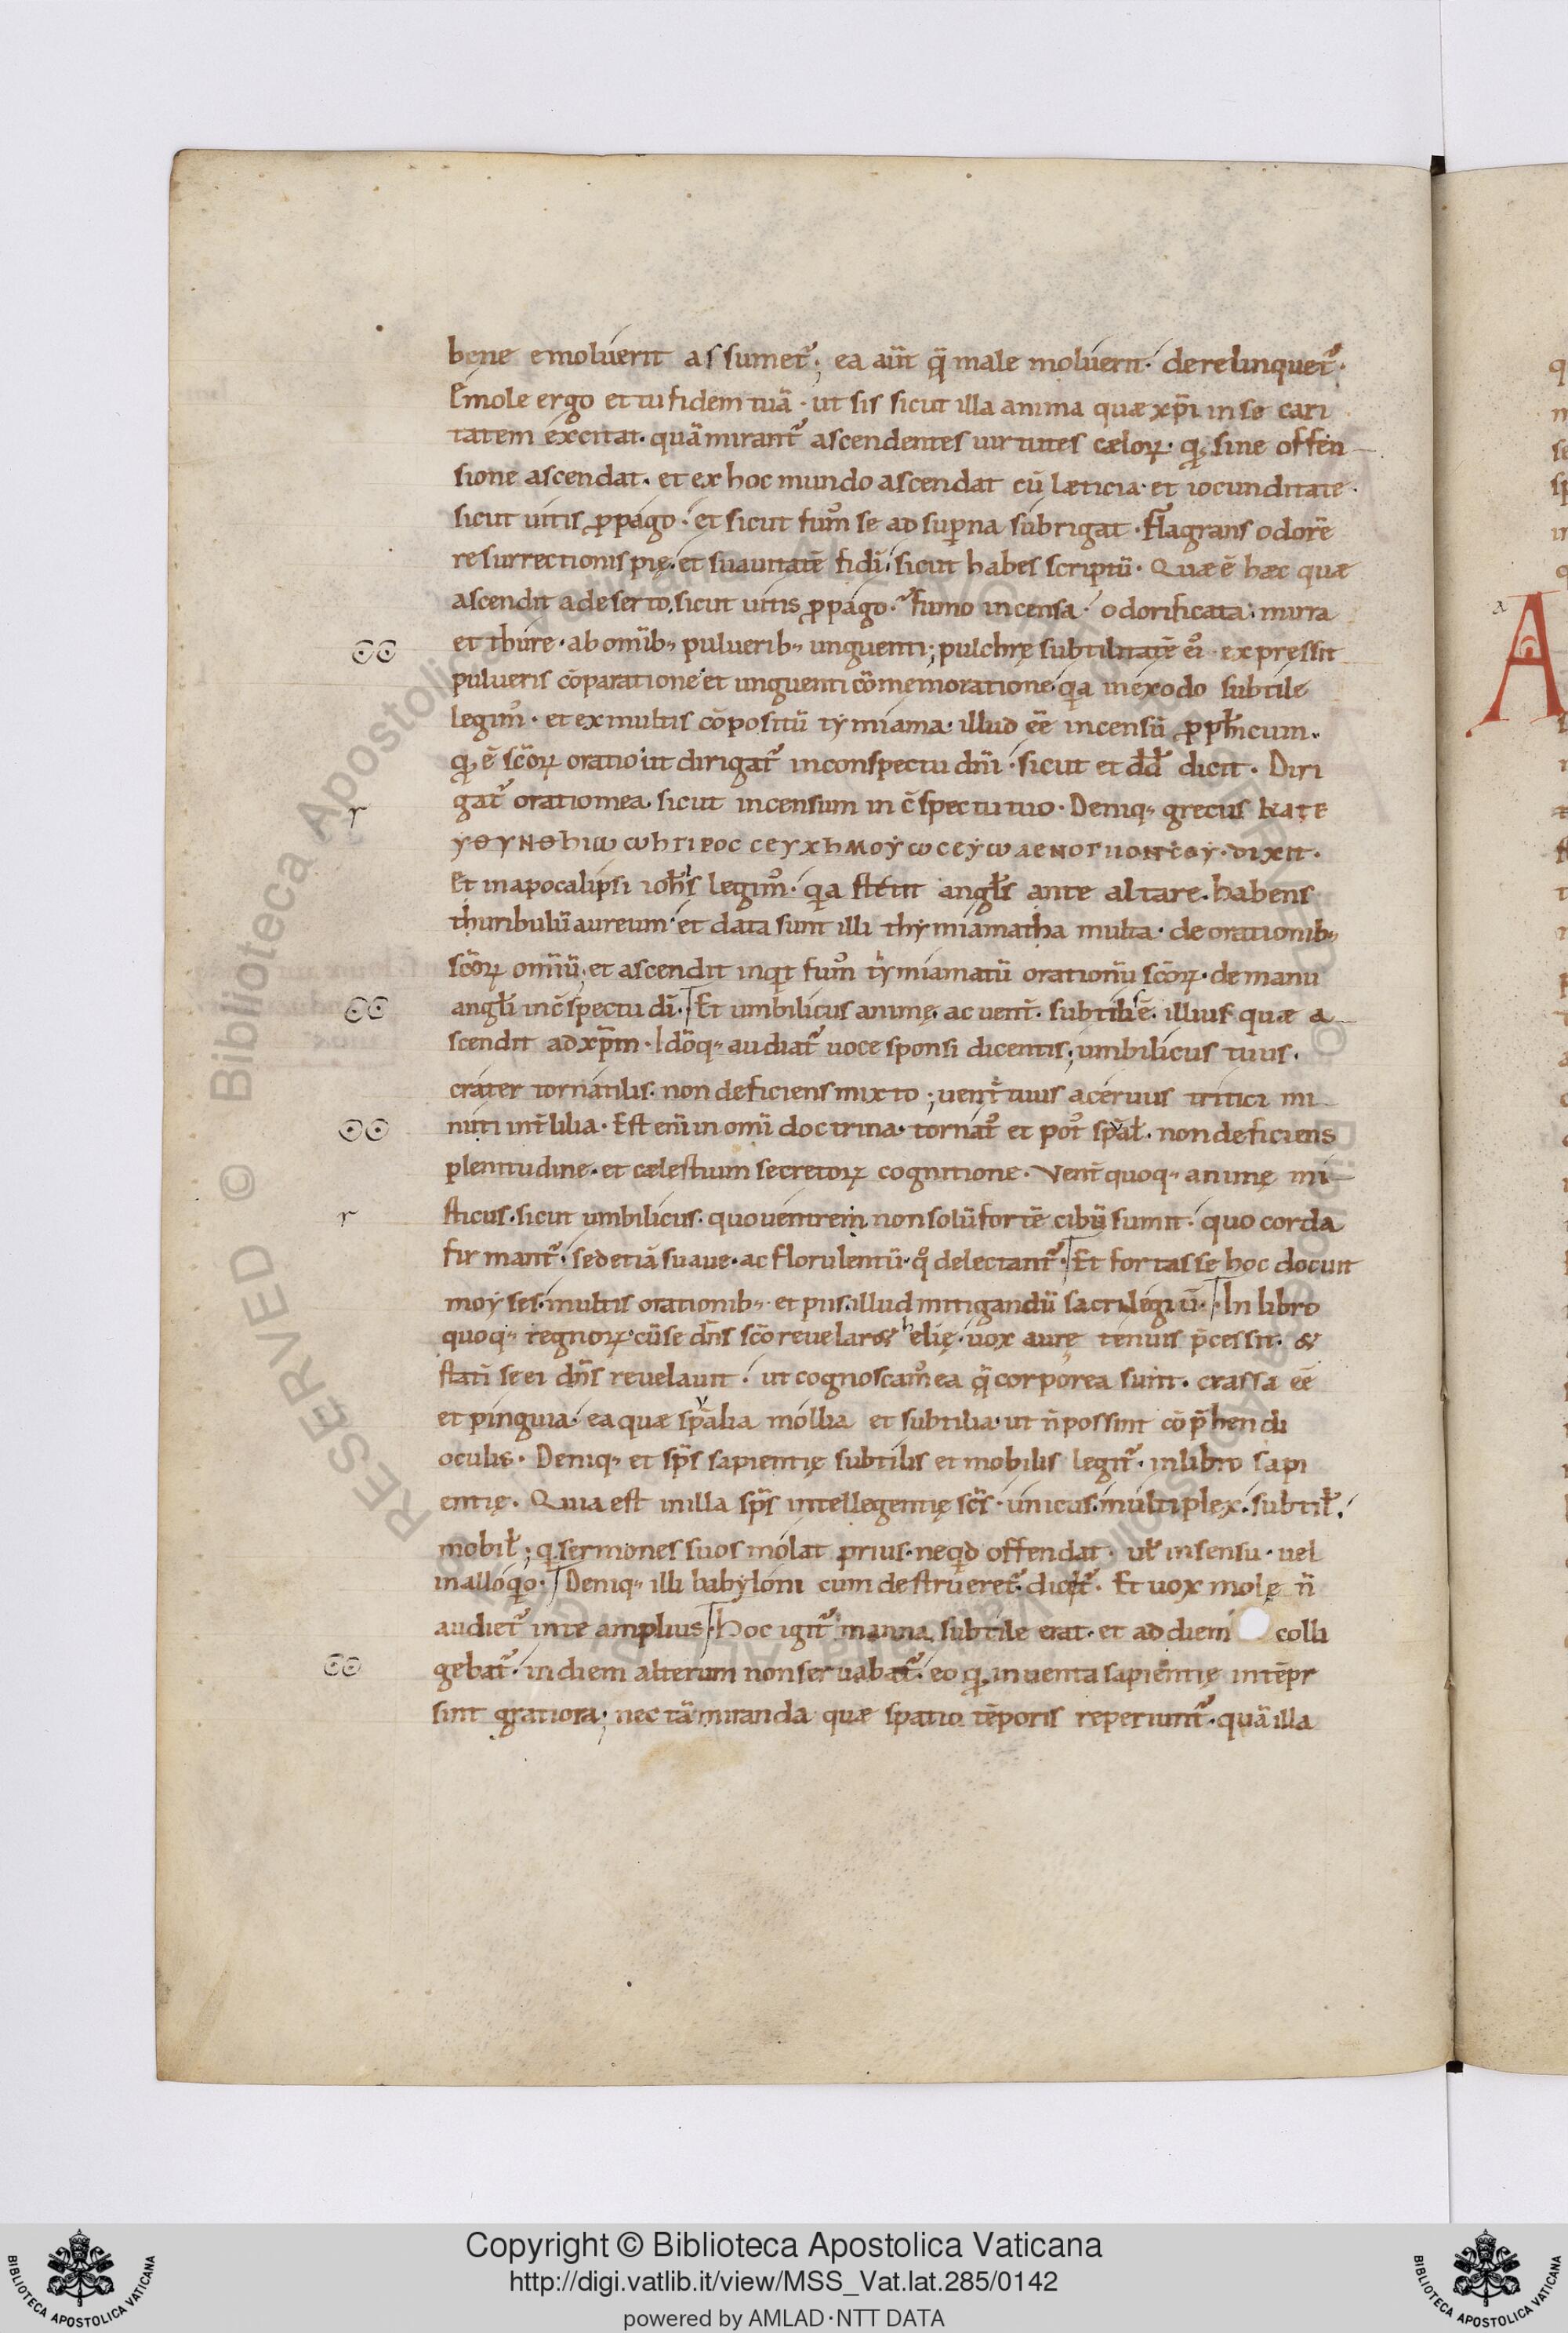 bene emoluerit assumet᷑; ea aūt q̄ male moluerit· derelinquet᷑·
Emole ergo et tu fidem tuā· ut sis sicut illa anima quæ xp̄i in se cari
tatem excitat· quā mirant᷑ ascendentes uirtutes cælorꝝ· qđ sine offen
sione ascendat· et ex hoc mundo ascendat cū læticia· et iocunditate·
sicut uitis ꝓpago· et sicut fum᷒ se ad sup̄na subrigat· Flagrans odorē
resurrectionis pię· et suauitatē fidī· sicut habes scriptū· Quæ ē hæc quæ
ascendit a deserto, sicut uitis ꝓpago· fumo incensa· odorificata· mirra
et thure· ab omīb; puluerib; unguenti; pulchrę subtilitatē ei᷒ expressit
pulueris cōparatione· et unguenti cōmemoratione· qa in exodo subtile
legim᷒· et ex multis cōpositū tymiama· illud eē incensū ꝓph̄icum·
qđ ē sc̄orꝝ oratio· ut dirigat᷑ in conspectu dn̄i· sicut et dd̄ dicit· Diri
gat᷑ oratio mea· sicut incensum in c̄spectu tuo· Deniq; grecus ΚΑΤΕ
ΥΘΥΝΘhΙω ωhΓΙΡΟC CΕΥΧhΜΟΥ ωCΕΥω ΑΕΝΟΓ ΥΟΝCΟΥ· dixit·
Et in apocalipsi ioh̄s legim᷒· qa stetit angl̄s ante altare· habens
thuribulū aureum· et data sunt illi thymiamatha multa· de orationib;
sc̄orꝝ omniū; et ascendit inqt fum᷒ tymiamatū orationū sc̄orꝝ· de manu
angl̄i in c̄spectu dī· Et umbilicus animę· ac uent̄· subtilis ē· illius quæ a
scendit ad xp̄m· Idōq; audiat᷑ uoce sponsi dicentis; umbilicus tuus·
crater tornatilis· non deficiens mixto; uent̄ tuus aceruus tritici mi
niti int̄ lilia· Est enī in omī doctrina· tornat᷒ et pot᷒ sp̄al̄· non deficiens
plenitudine· et cælestium secretorꝝ cognitione· Vent̄ quoq; animę mi
sticus· sicut umbilicus· quo uentrem non solū fortē cibū sumit· quo corda
firmant᷑· sed etiā suaue· ac florulentū· q̊ delectant᷑· Et fortasse hoc docuit
moyses· multis orationib; et piis· illud mitigandū sacrilegiū· In libro
quoq; regnorꝝ· cū se dn̄s sc̄o reuelar& helię· uox aurę tenuis p̄cessit· &
statī se ei dn̄s reuelauit· ut cognoscam᷒ ea q̄ corporea sunt· crassa eē
et pinguia· ea quæ sp̄alia mollia et subtilia· ut n̄ possint cōp̄hendi
oculis· Deniq; et sp̄s sapientię subtilis et mobilis legit᷑· in libro sapi
entię· Quia est in illa sp̄s intellegentię sc̄s· unicus· multiplex· subtil̄·
mobil̄; qđ sermones suos molat prius· neqđ offendat· ul̄ in sensu· uel
in alloqo· Deniq; illi babyloni cum destrueret᷑· dicet᷑· Et uox molę n̄
audiet᷑ in te amplius· Hoc igit᷑ manna subtile erat· et ad diem colli
gebat᷑· in diem alterum non seruabat᷑· eo qđ inuenta sapientię in tēpr
sint gratiora; nec tā miranda quæ spatio tēporis reperiunt᷑· quā illa
A
Copyright © Biblioteca Apostolica Vaticana
http://digi.vatlib.it/view/MSS_Vat.lat.285/0142
powered by AMLAD·NTT DATA
BIBLIOTECA APOSTOLICA VATICANA
BIBLIOTECA APOSTOLICA VATICANA